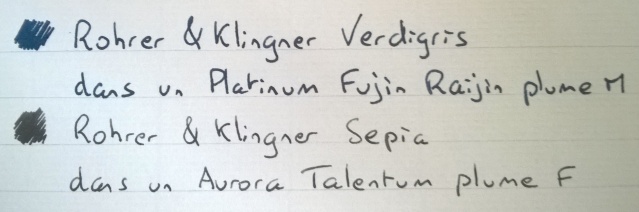 Rohrer & Klingner Verdigris
dans un Platinum Fujin Raijin plume M
Rohrer & Klingner Sepia
dans un Aurora Talentum plume F